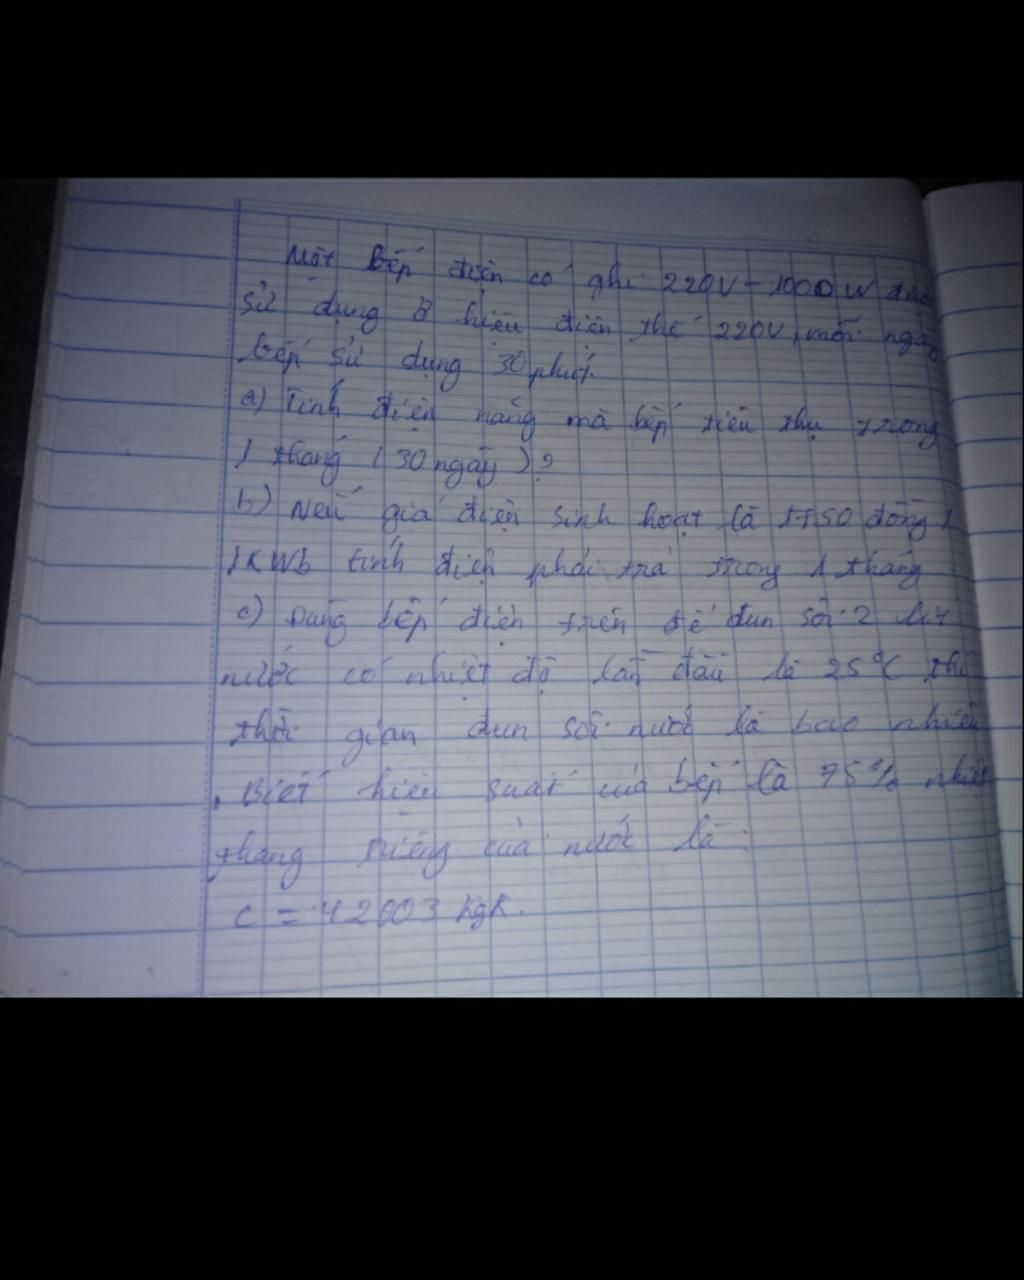 Một bếp điện có ghi 220V - 1000W được
sử dụng ở hiệu điện thế 220V, mỗi ngày
bếp sử dụng 30 phút.
a) Tính điện năng mà bếp tiêu thụ trong
1 tháng (30 ngày)?
b) Nếu giá điện sinh hoạt là 1750 đồng/
1KWh tính điện phải trả trong 1 tháng
c) Dùng bếp điện trên để đun sôi 2 lít
nước có nhiệt độ lần đầu là 25°C thì
thời gian đun sôi nước là bao nhiêu
. Biết hiệu suất của bếp là 75% nhiệt
thang riêng của nước là:
C = 42003 KgK.